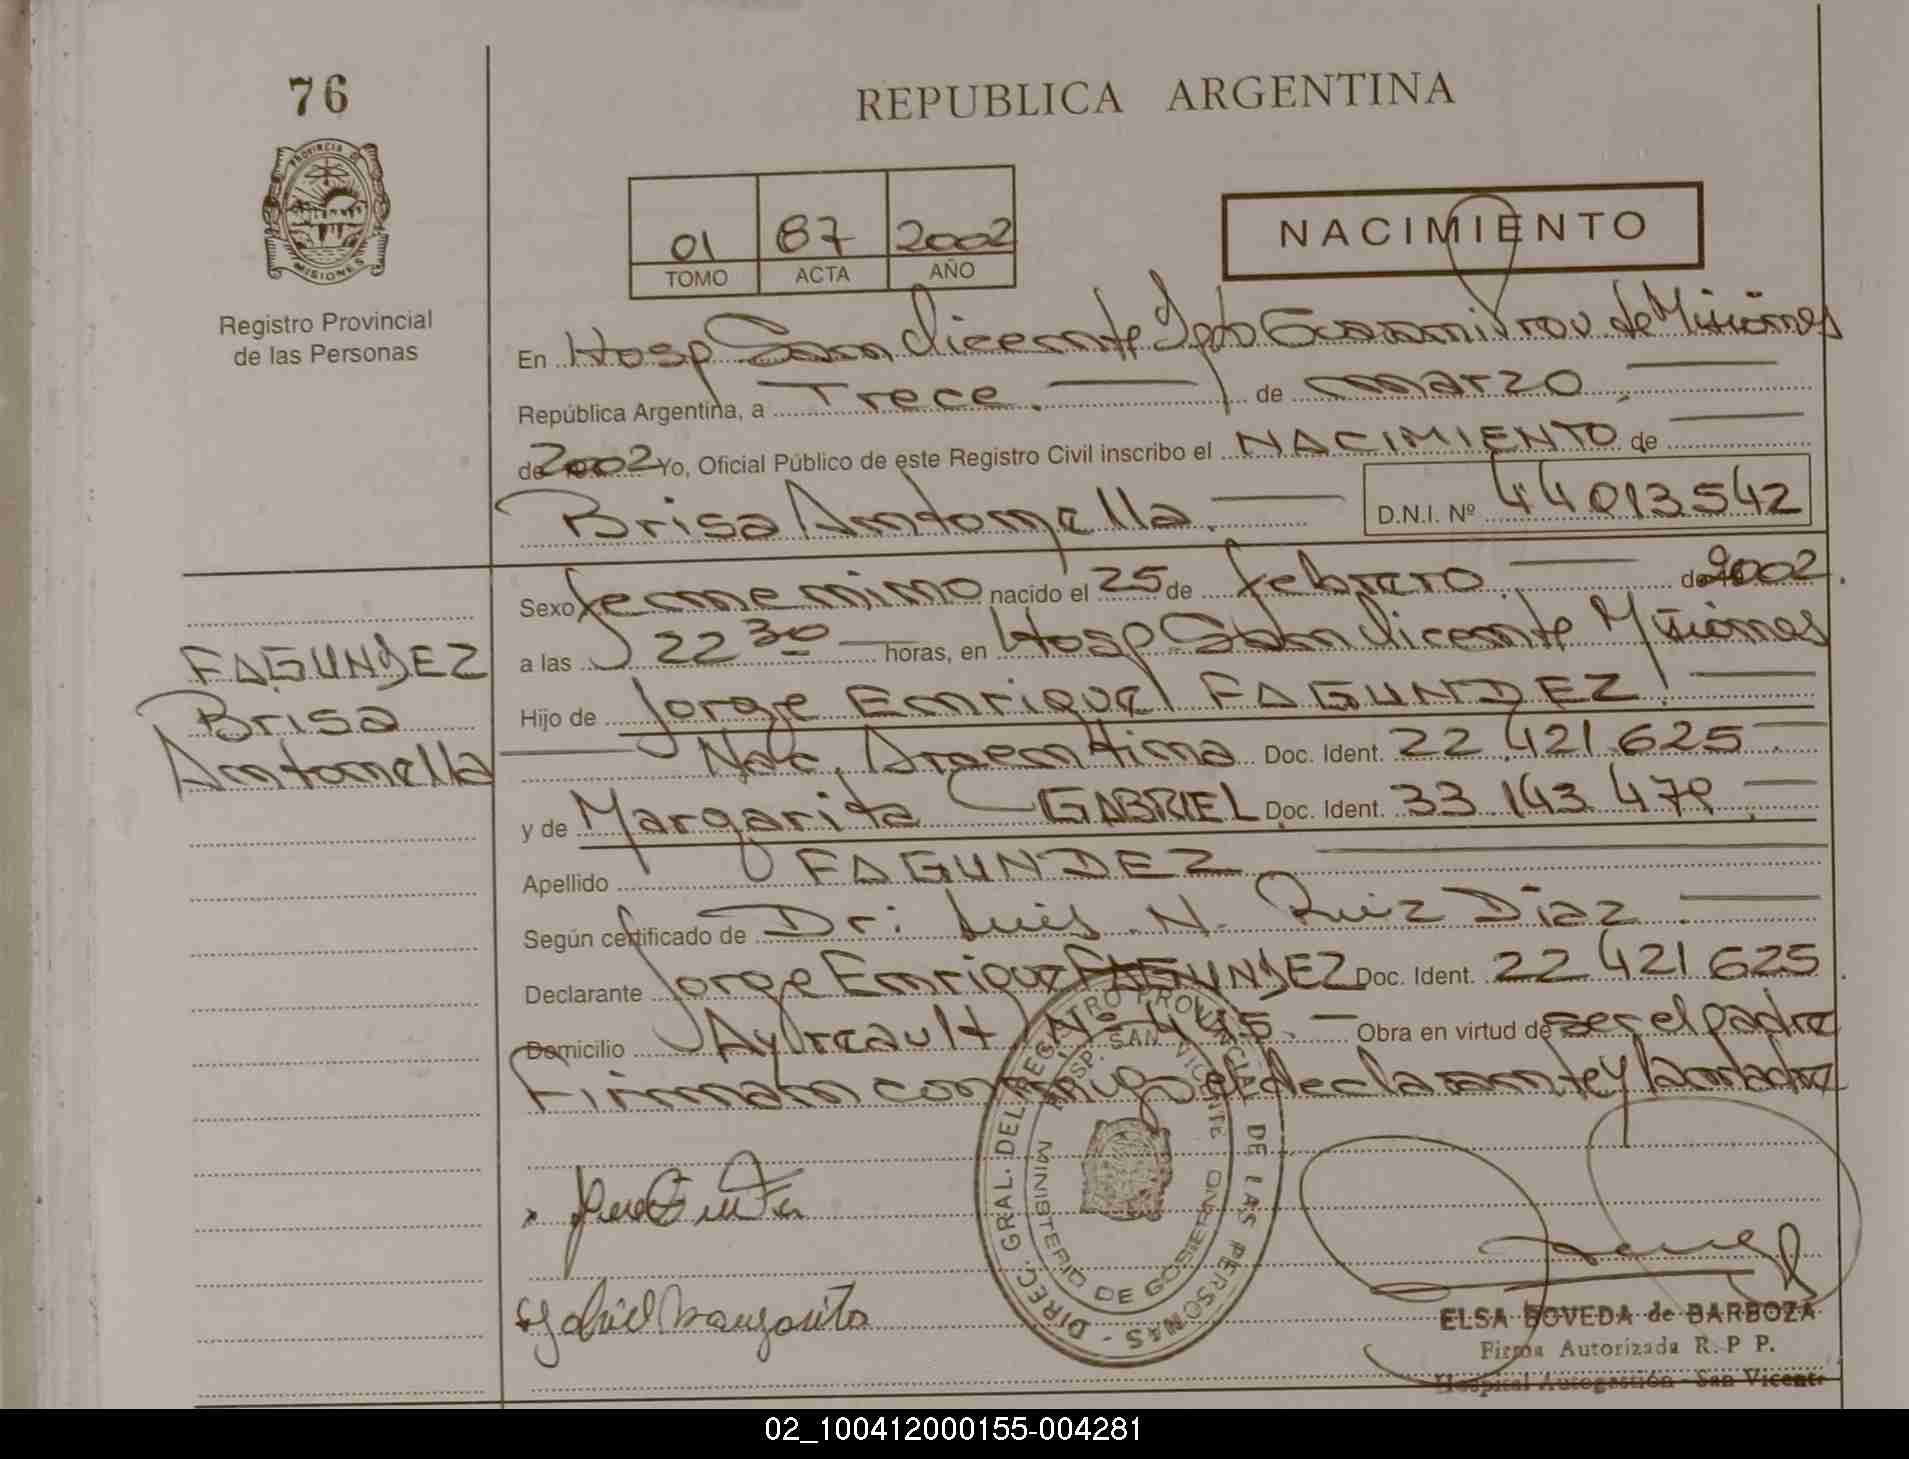 76
REPUBLICA ARGENTINA
PROVINCIA D
MISIONES
Registro Provincial
de las Personas
01 87 2002
TOMO ACTA AÑO
NACIMIENTO
En Hosp San Vicente Dpto Guarani Prov de Misiones
República Argentina, a Trece. de marzo
de 2002 Yo, Oficial Público de este Registro Civil inscribo el NACIMIENTO de
Brisa Antonella. D.N.I. Nº 44013542
Sexo femenino nacido el 25 de febrero. de 2002.
a las 22 30 horas, en Hosp San Vicente Misiones
FAGUNDEZ
Brisa
Antonella
Hijo de Jorge Enrique FAGUNDEZ
Nac. Argentina Doc. Ident. 22.421.625
y de Margarita GABRIEL Doc. Ident. 33 143 479
Apellido FAGUNDEZ
Según certificado de Dr: Luis N. Ruiz Diaz
Declarante Jorge Enrique FAGUNDEZ Doc. Ident. 22 421 625
Domicilio Ayrcault Nº 445. Obra en virtud de ser el padre
Firman conmigo el declarante y la madre
DIREC. GRAL. DEL REGISTRO PROVINCIAL DE LAS PERSONAS -
HOSP. SAN VICENTE
MINISTERIO DE GOBIERNO
Gabriel Margarita
ELSA BOVEDA de BARBOZA
Firma Autorizada R. P P.
Hospital Autogestión - San Vicente
02_100412000155-004281